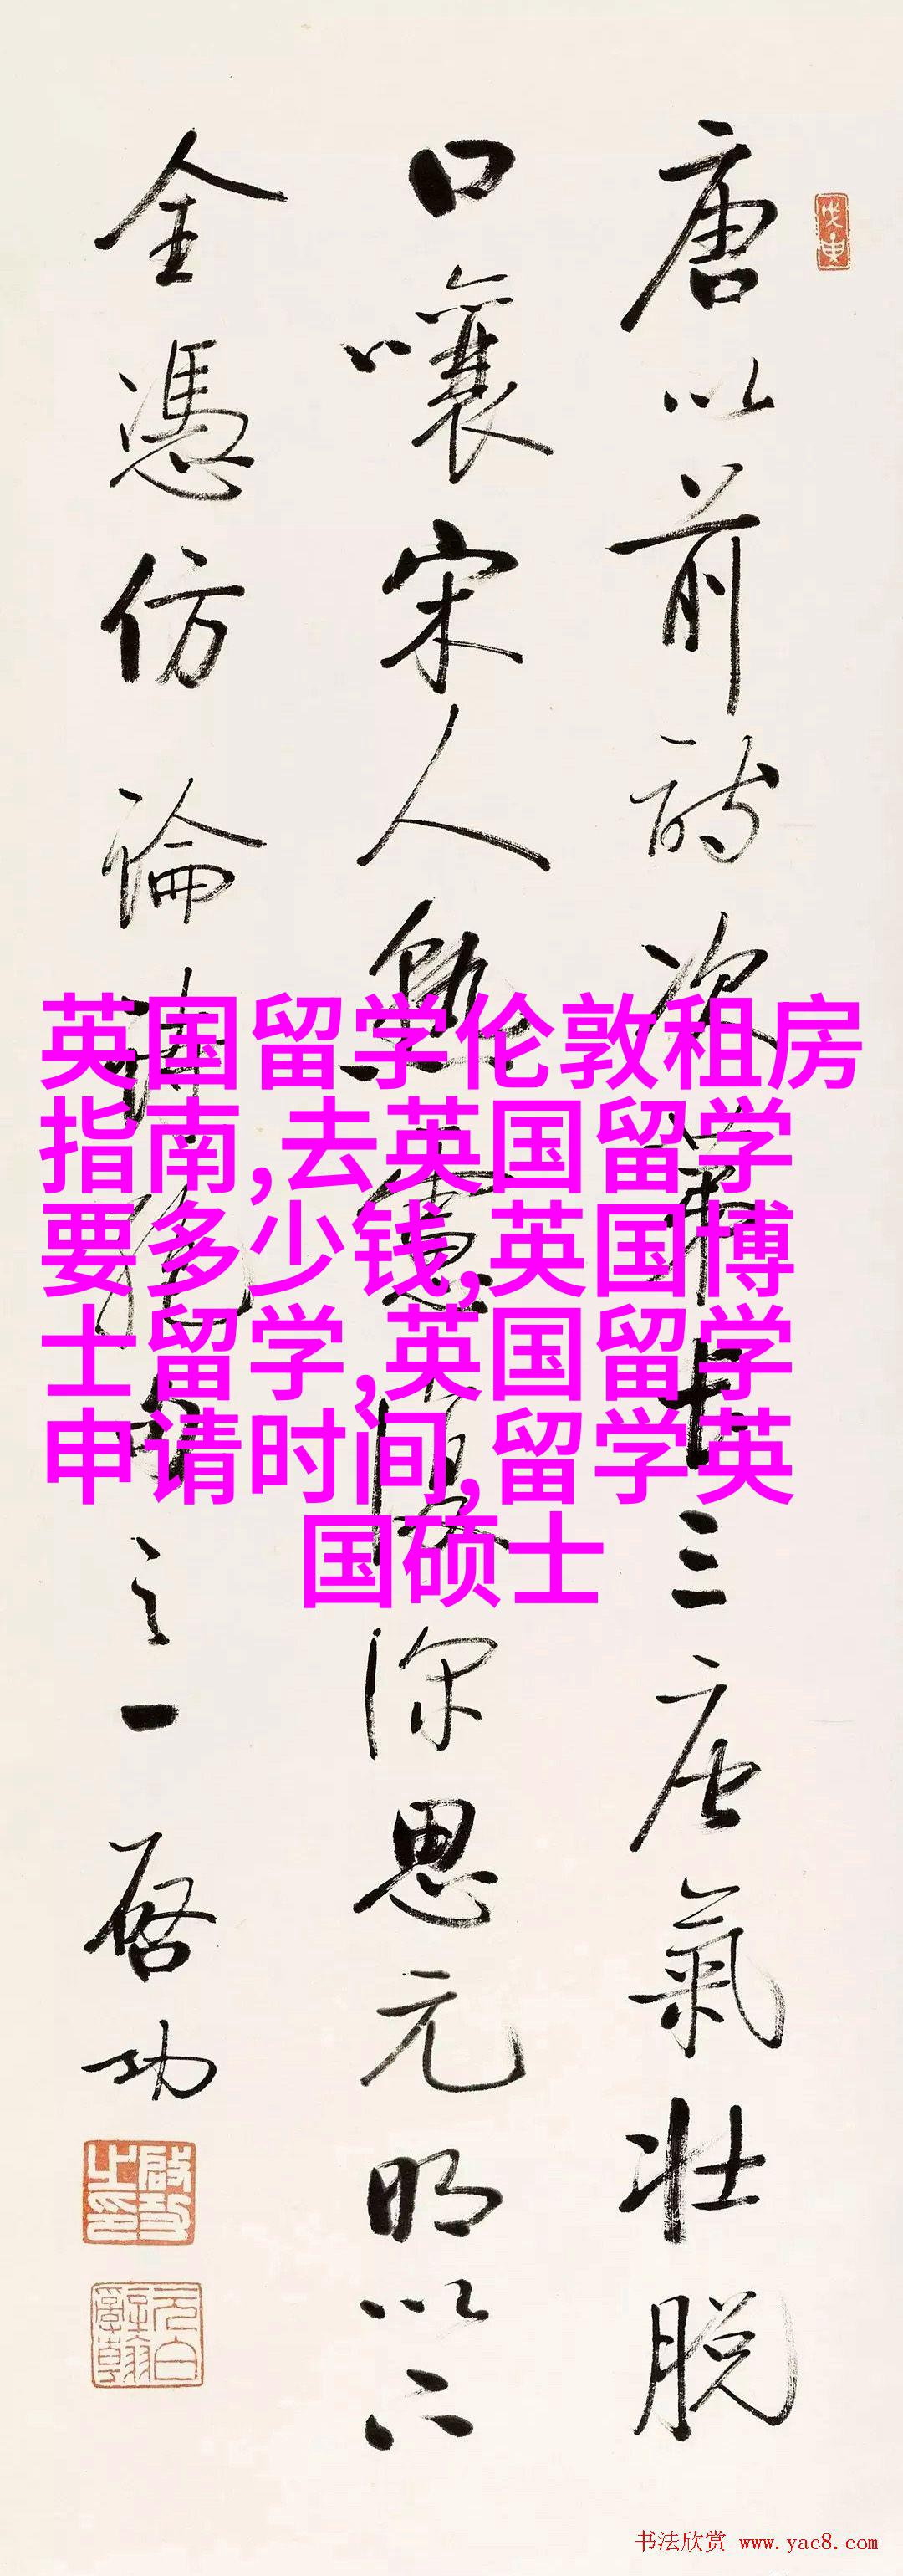 戊申
唐以前詩次第長三唐氣壯脱
口嚷宋人熟慮復深思元明以下
全憑仿 論詩絶句之一 启功
啟功之印
英国留学伦敦租房
指南,去英国留学
要多少钱,英国博
士留学,英国留学
申请时间,留学英
国硕士
书法欣赏 www.yac8.com